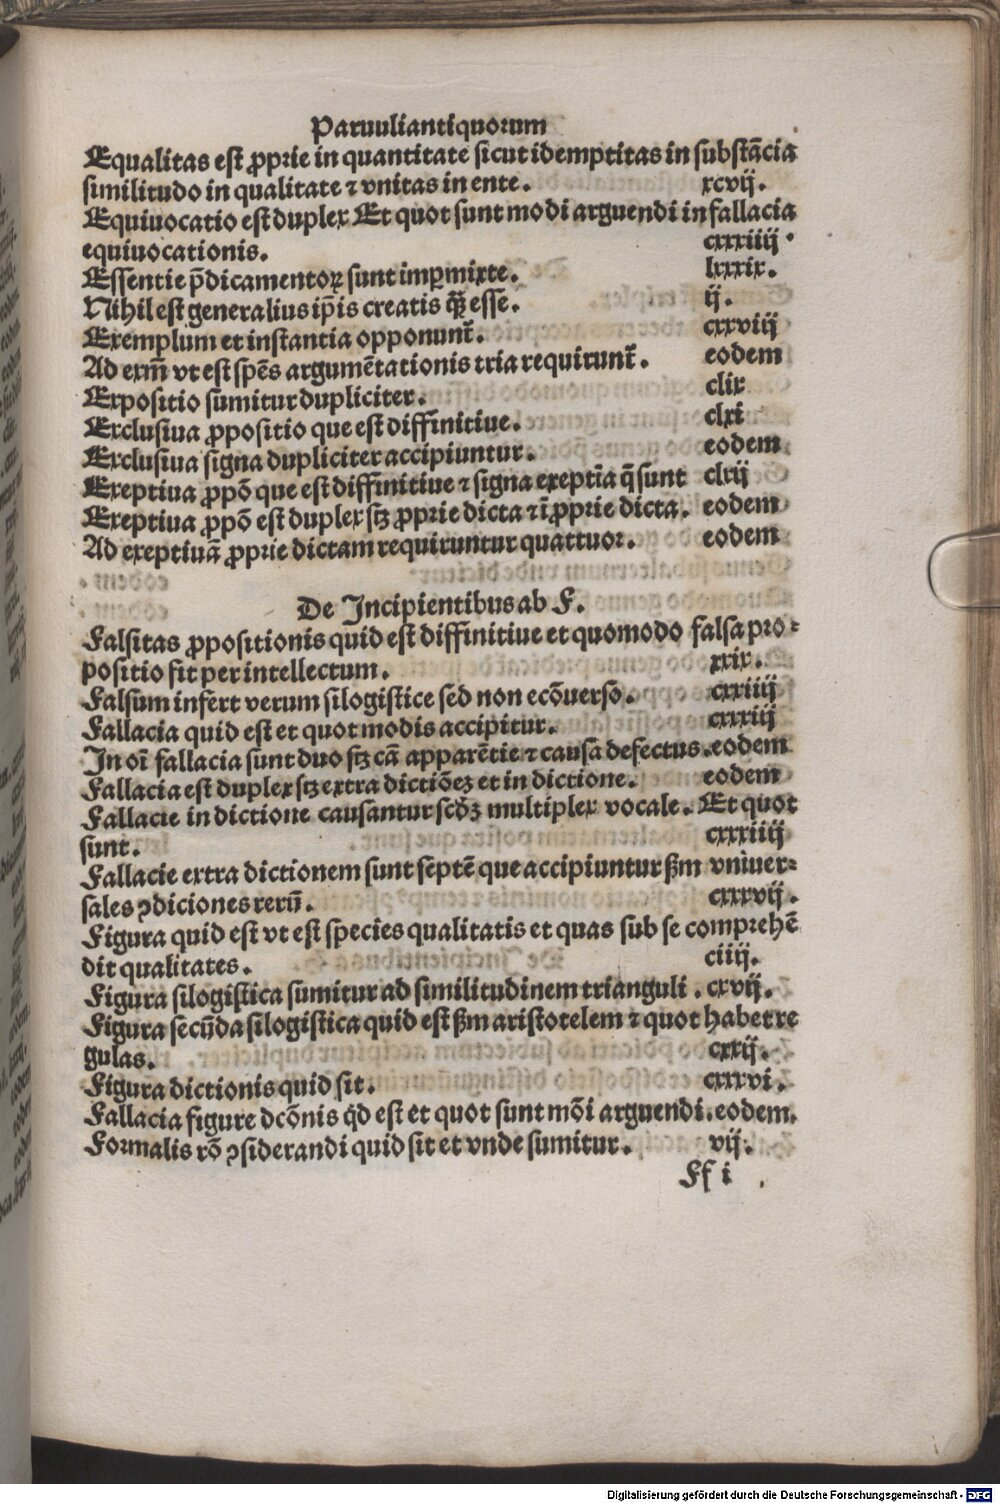 Paruuliantiquorum
Equalitas est ꝓprie in quantitate sicut idemptitas in substãcia
similitudo in qualitate ⁊ vnitas in ente. xcvij.
Equiuocatio est duplex Et quot sunt modi arguendi in fallacia
equiuocationis. cxxxiiij.
Essentie p̃dicamentoꝝ sunt imꝑmixte. lxxxix.
Nihil est generalius ip̃is creatis q̃ꝫ esse. ij.
Exemplum et instantia opponunt̃. cxxviij
Ad exm̃ vt est sp̃es argumẽtationis tria requirunt̃. eodem
Expositio sumitur dupliciter. clix
Exclusiua ꝓpositio que est diffinitiue. clxi
Exclusiua signa dupliciter accipiuntur. eodem
Exeptiua ꝓpõ que est diffinitiue ⁊ signa exeptĩa q̃ sunt clxij
Exeptiua ꝓpõ est duplex sꝫ ꝓprie dicta ⁊ ĩꝓprie dicta. eodem
Ad exeptiuã ꝓprie dictam requiruntur quattuor. eodem
De Incipientibus ab F.
Falsitas ꝓpositionis quid est diffinitiue et quomodo falsa pro-
positio fit per intellectum. xxix.
Falsum infert verum silogistice sed non ecõuerso. cxxiiij
Fallacia quid est et quot modis accipitur. cxxxiij
In oĩ fallacia sunt duo sꝫ cã apparẽtie ⁊ causa defectus. eodem
Fallacia est duplex sꝫ extra dictiõeꝫ et in dictione. eodem
Fallacie in dictione causantur scd̃ꝫ multiplex vocale. Et quot
sunt. cxxxiiij
Fallacie extra dictionem sunt septẽ que accipiuntur ẞm vniuer-
sales ꝯdiciones rerũ. cxxxvij.
Figura quid est vt est species qualitatis et quas sub se comprehẽ
dit qualitates. ciiij.
Figura silogistica sumitur ad similitudinem trianguli. cxvij.
Figura secũda silogistica quid est ẞm aristotelem ⁊ quot habet re
gulas. cxxij.
Figura dictionis quid sit. cxxxvi.
Fallacia figure dcõnis q̇d est et quot sunt mõi arguendi. eodem.
Formalis rõ ꝯsiderandi quid sit et vnde sumitur. vij.
Ff i
Digitalisierung gefördert durch die Deutsche Forschungsgemeinschaft - DFG